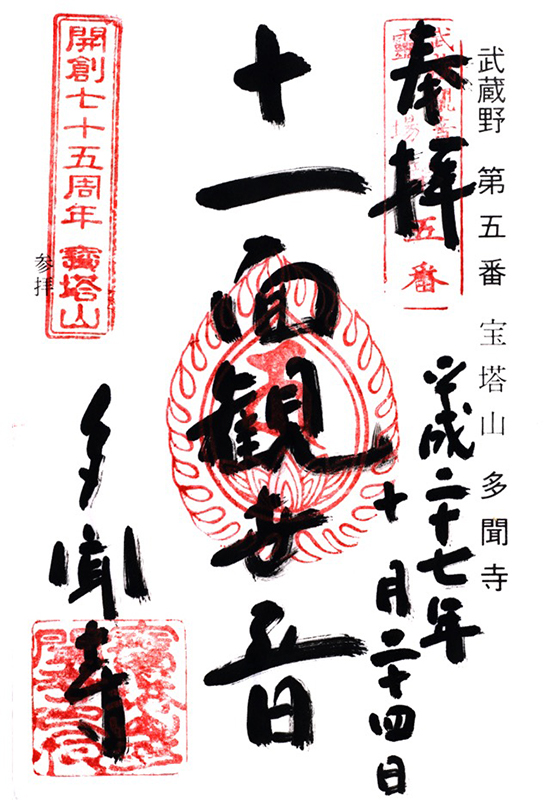 武蔵野 第五番 宝塔山 多聞寺
奉拝
五番
平成二十七年
十月二十四日
十一面観世音
開創七十五周年 寳塔山
参拝
多聞寺